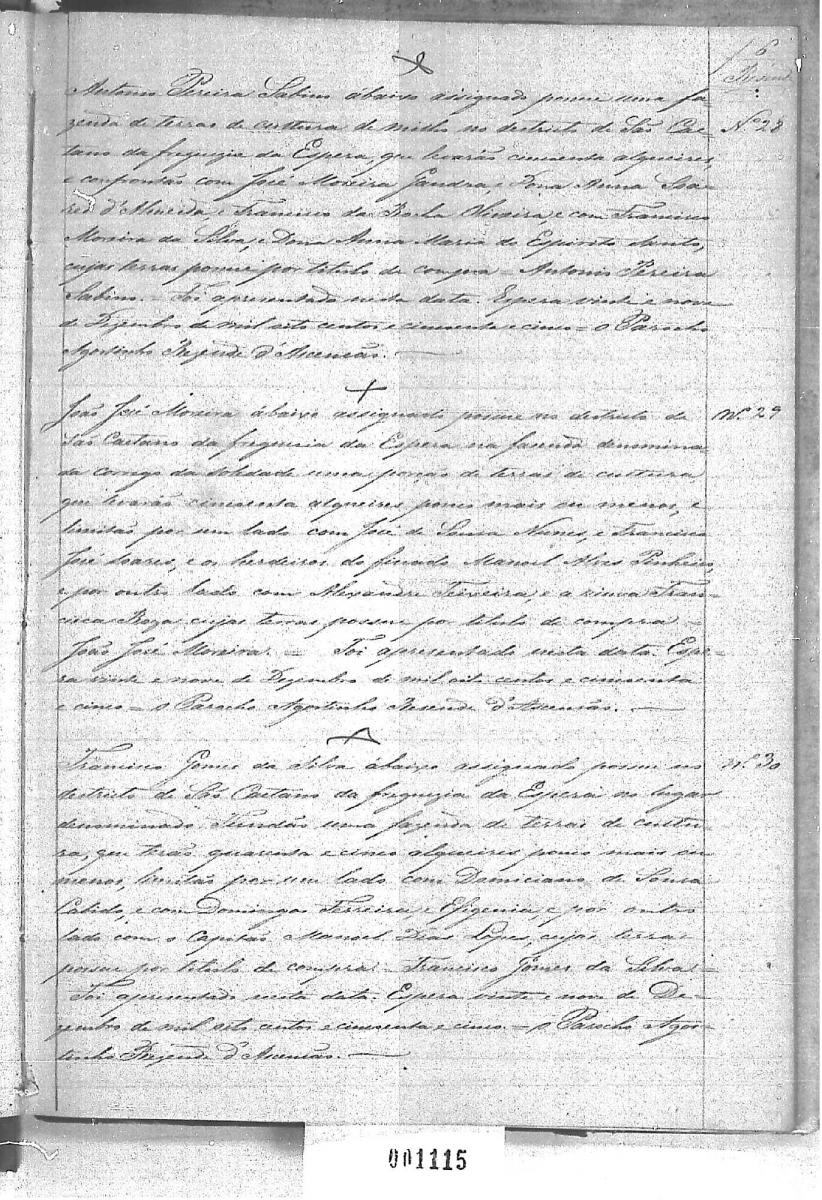 6
Resende
Antonio Pereira Sabino abaixo assignado possue uma fa-
zenda de terras de culttura de milho no destricto de São Cae- Nº 28
tano da freguezia da Espera, que levarás cincoenta alqueires,
e confrontão com José Moreira Gandra e Dona Anna Soa-
res d'Almeida e Francisco da Rocha Oliveira e com Francisco
Moreira da Silva, e Dona Anna Maria do Espirito Santo,
cujas terras possue por titulo de compra = Antonio Pereira
Sabino. = Foi apresentado nesta data. Espera vinte e nove
de Dezembro de mil oito centos e cincoenta e cinco = o Parocho
Agostinho Rezende d'Ascensão.
João José Moreira abaixo assignado possue no destricto de Nº 29
São Caetano da freguezia da Espera na fazenda denomina-
da corrego da Soledade uma porção de terras de culttura
que levarás cincoenta alqueires pouco mais ou menos, e
limitão por um lado com José de Sousa Nunes, e Francisco
José Soares, e os herdeiros do finado Manoel Alves Pinheiro,
e por outro lado com Alexandre Teixeira, e a viuva Fran-
cisca Roza, cujas terras possue por titulo de compra =
João José Moreira. = Foi apresentado nesta data. Espe-
ra vinte e nove de Dezembro de mil oito centos e cincoenta
e cinco = o Parocho Agostinho Resende d'Ascensão.
Francisco Gomes da Silva abaixo assignado possue no Nº 30
destricto de São Caetano da freguezia da Espera no lugar
denominado Fundão uma fazenda de terras de cultu-
ra, que terás quarenta e cinco alqueires pouco mais ou
menos, limitão por um lado com Domiciano de Sousa
e com Domingos Ferreira, e Efigenia, e por outro
lado com o Capitão Manoel Dias Lopes, cujas terras
possue por titulo de compra = Francisco Gomes da Silva =
Foi apresentado nesta data. Espera vinte e nove de De-
zembro de mil oito centos e cincoenta e cinco. = o Parocho Agos-
tinho Rezende d'Ascensão.
001115